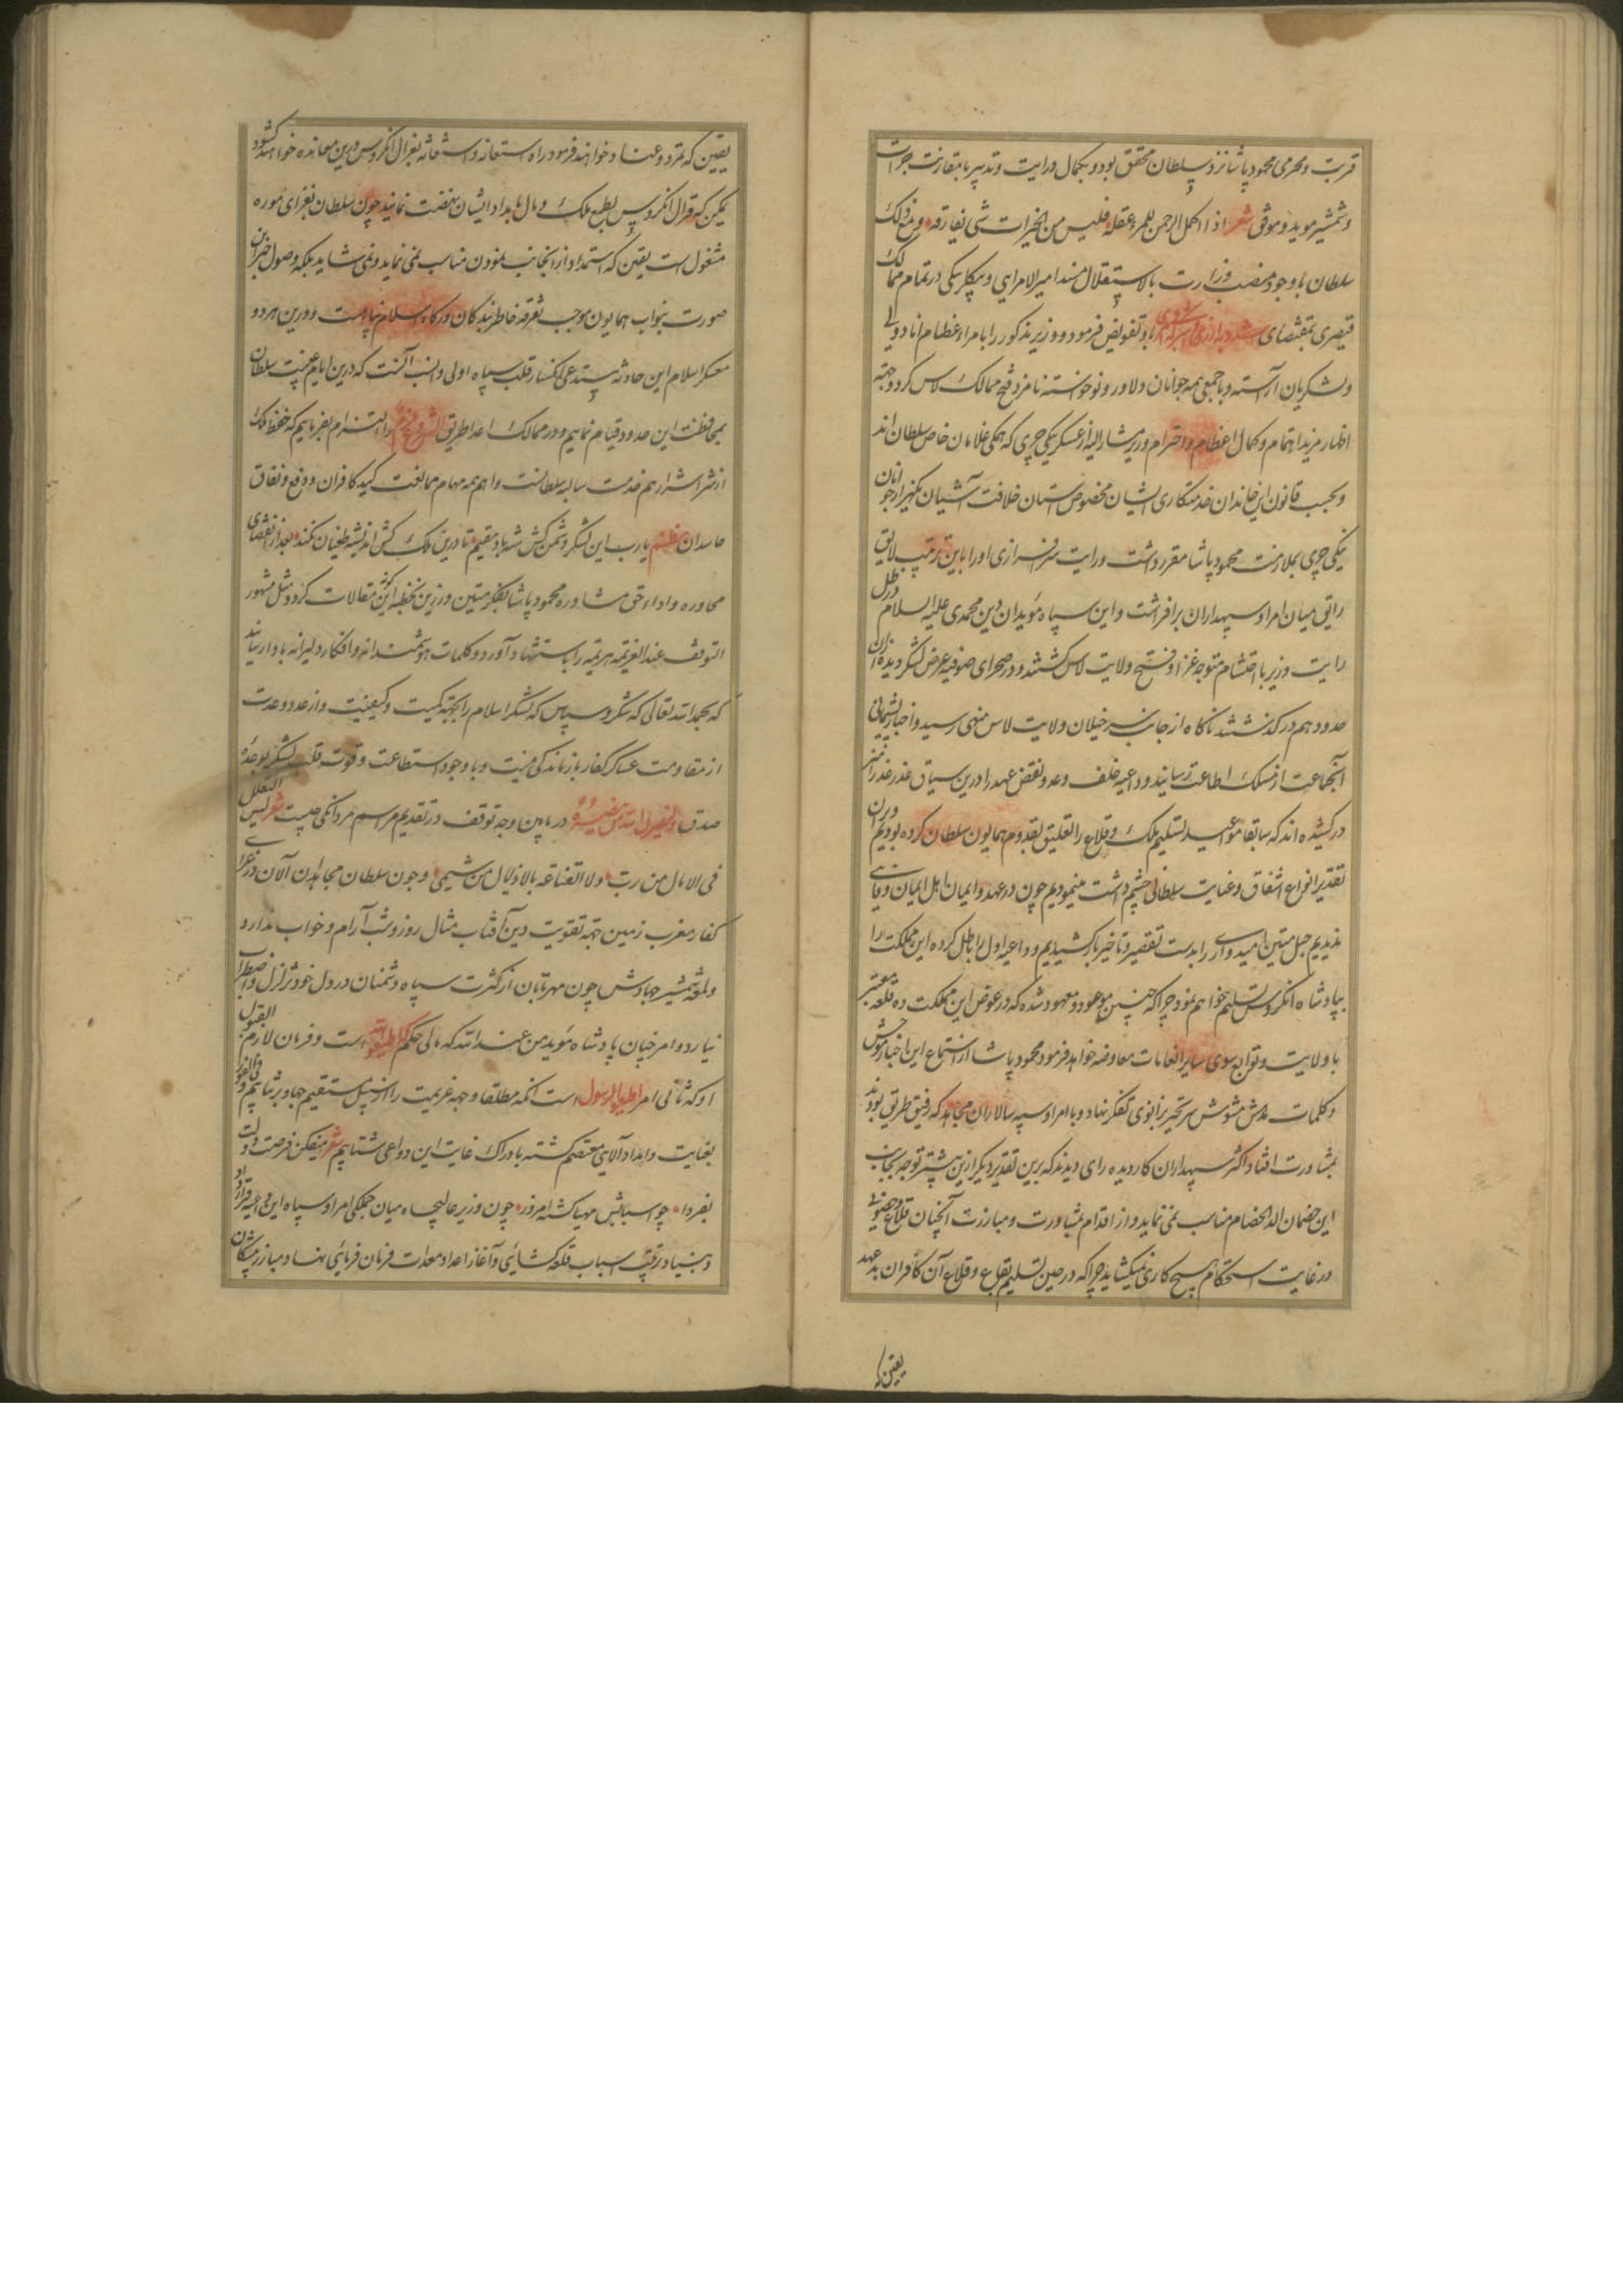 قربت و محرمی محمود پاشا نزد سلطان محقق بود و بکمال درایت و تدبیر با مقارنت جرات
و شمشیر موید و موفق شعر اذا اکمل الرحمن للمرء عقله فلیس من الخیرات شی یفارقه و مع ذلک
سلطان با وجود منصب وزارت بالاستقلال مسند امیر الامرایی و بیکلربیکی در تمام ممالک
قیصری بمقتضای باو تفویض فرمود و وزیر مذکور را با امراء عظام انادولی
و لشکریان آراسته و با جمعی همه جوانان دلاور و نوخواسته نامزد فتح ممالک لاس کرد و جهة
اظهار مزید اهتمام و کمال اعظام و احترام وزیر مشار الیه از عسکر یکی چری که همکی غلامان خاص سلطان اند
و بحسب قانون این خاندان خدمتکاری ایشان مخصوص آستان خلافت آشیان یکهزار جوانان
یکی چری بملازمت محمود پاشا مقرر داشت و رایت سرافرازی او را باین ترتیب لایق
رایق میان امرا و سپهداران برافراشت و این سپاه مؤیدان دین محمدی علیه السلام در ظل
رایت وزیر با احتشام متوجه غزا و فتح ولایت لاس کشتند و در صحرای صوفیه عرض لشکر دیده از ان
حدود هم در کذشتند ناکاه از جانب سرخیلان ولایت لاس منهی رسید و اخبار پشیمانی
آنجماعت از مسلک اطاعت رسانید و داعیه خلف وعد و نقض عهد را درین سیاق عذر
در کشیده اند که سابقا مواعید تسلیم ملک و قلاع را تعلیق بقدوم همایون سلطان کرده بودیم و بران
تقدیر انواع اشفاق و عنایت سلطانی چشم داشت مینمودیم چون در عهد و ایمان اهل ایمان وفایی
ندیدیم حبل متین امیدواری را بدست تقصیر و تاخیر باز کشیدیم و داعیه اول را باطل کرده این مملکت را
بپادشاه انکروس تسلیم خواهیم نمود چرا که چنین موعود و معهود شده که در عوض این مملکت ده قلعه معتبر
با ولایت و توابع سوی سایر انعامات معاوضه خواهد فرمود محمود پاشا از استماع این اخبار موحش
و کلمات مدهش مشوش سر تحیر بزانوی تفکر نهاد و با امرا و سپه سالاران مجاهد که رفیق طریق بودند
بمشاورت افتاد اکثر سپهداران کاردیده رای دیدند که برین تقدیر دیکر ازین پیشتر توجه بجانب
این خصمان الد الخصام مناسب نمی نماید و از اقدام بمشاورت و مبارزت آنچنان قلاع و حصون
در غایت استحکام هیچ کاری نمیکشاید چرا که در حین تسلیم بقاع و قلاع آن کافران بدعهد
یقین که
یقین که تمرد و عناد خواهند فرمود و راه استعانه و استغاثه بقرال انکروس درین معانده خواهند کشود
یمکن که قرال انکروس بطمع ملک و مال بامداد ایشان نهضت نمایند چون سلطان بغزای موره
مشغول است یقین که استمداد از انجانب نمودن مناسب نمی نماید و نمی شاید بلکه وصول خبر این
صورت بنواب همایون موجب تفرقه خاطر بندکان درکاه اسلام پناهست و درین هر دو
معسکر اسلام این حادثه مستدعی انکسار قلب سپاه اولی و انسب آنست که درین ایام غیبت سلطان
بمحافظت این حدود قیام نماییم و در ممالک اعدا طریق التزام بفرماییم که حفظ ملک
از شر اشرار هم خدمت سالبه سلطانست و اهم همه مهام ممانعت کید کافران و دفع و نفاق
حاسدان نظم یارب این لشکر دشمن کش شه باد مقیم تا درین ملک کش اندیشه طغیان نکند بعد از انقضای
محاوره و اداء حق مشاوره محمود پاشا بفکر متین و رزین تخطئه این کونه مقالات کرد و مثل مشهور
التوقف عند العزیمه هزیمه را باستشهاد آورد و کلمات هوشمندانه و افکار دلیرانه باو رسانید
که بحمد الله تعالی که شکر و سپاس که لشکر اسلام را بجهة کمیت و کیفیت و از عدد و عدت
از مقاومت عساکر کفار باز ماندکی نیست و با وجود استطاعت و قوت قلب لشکر بوعده
صدق و لینصرن الله من ینصره درمابین وجه توقف در تقدیم مراسم مردانکی چیست شعر لیس التعلل
فی الامال من ربی ولا القناعة بالاذلال من شیمی و چون سلطان مجاهدان آلان در غزای
کفار مغرب زمین جهة تقویت دین آفتاب مثال روز و شب آرام و خواب ندارد
و لمعه شمشیر جهادش چون مهر تابان از کثرت سپاه دشمنان در دل خود تزلزل و اضطراب
نیارد و امر چنان پادشاه مؤید من عند الله که مالی حکم اطیعوا الله است و فرمان لازم القبول
او که ثانی امر اطیعوا الرسول است آنکه مطلقا وجهه عزیمت را از سبیل مستقیم جهاد بر نتابیم و فی الفور
بعنایت و امداد آلهی معتصم کشته بادراک غایت این دواعی شتابیم شعر میفکن فرصت دولت
بفردا چو اسبابش مهیا کشت امروز چون وزیر عالیجاه میان جملکی امرا و سپاه این داعیه قرار داد
و بنیاد ترتیب اسباب قلعه کشائی و آغاز اعداد معدات فرمان فرمائی نهاد مبارز پیشکان